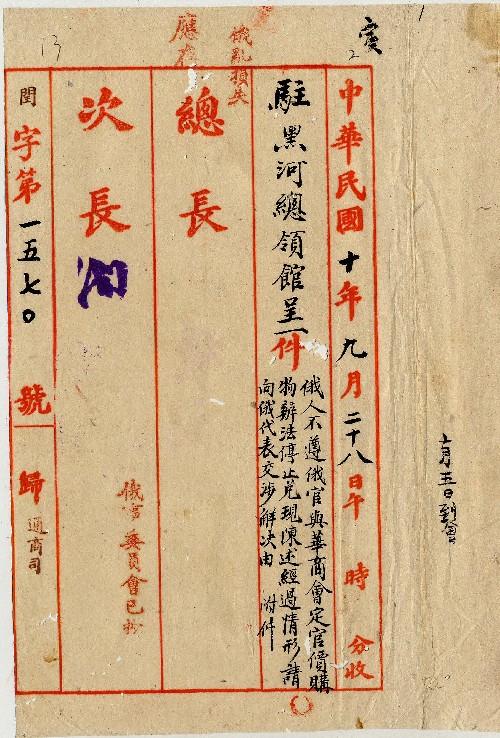 十月五日到會
中華民國十年九月二十八日午 時 分收
駐黑河總領館呈一件
俄人不遵俄官與華商會定官價購
物辦法停止兌現陳述經過情形請
向俄代表交涉解決由 附件
俄亂損失
總長
次長
俄 委員會已抄
閏字第一五七〇號歸通商司
13